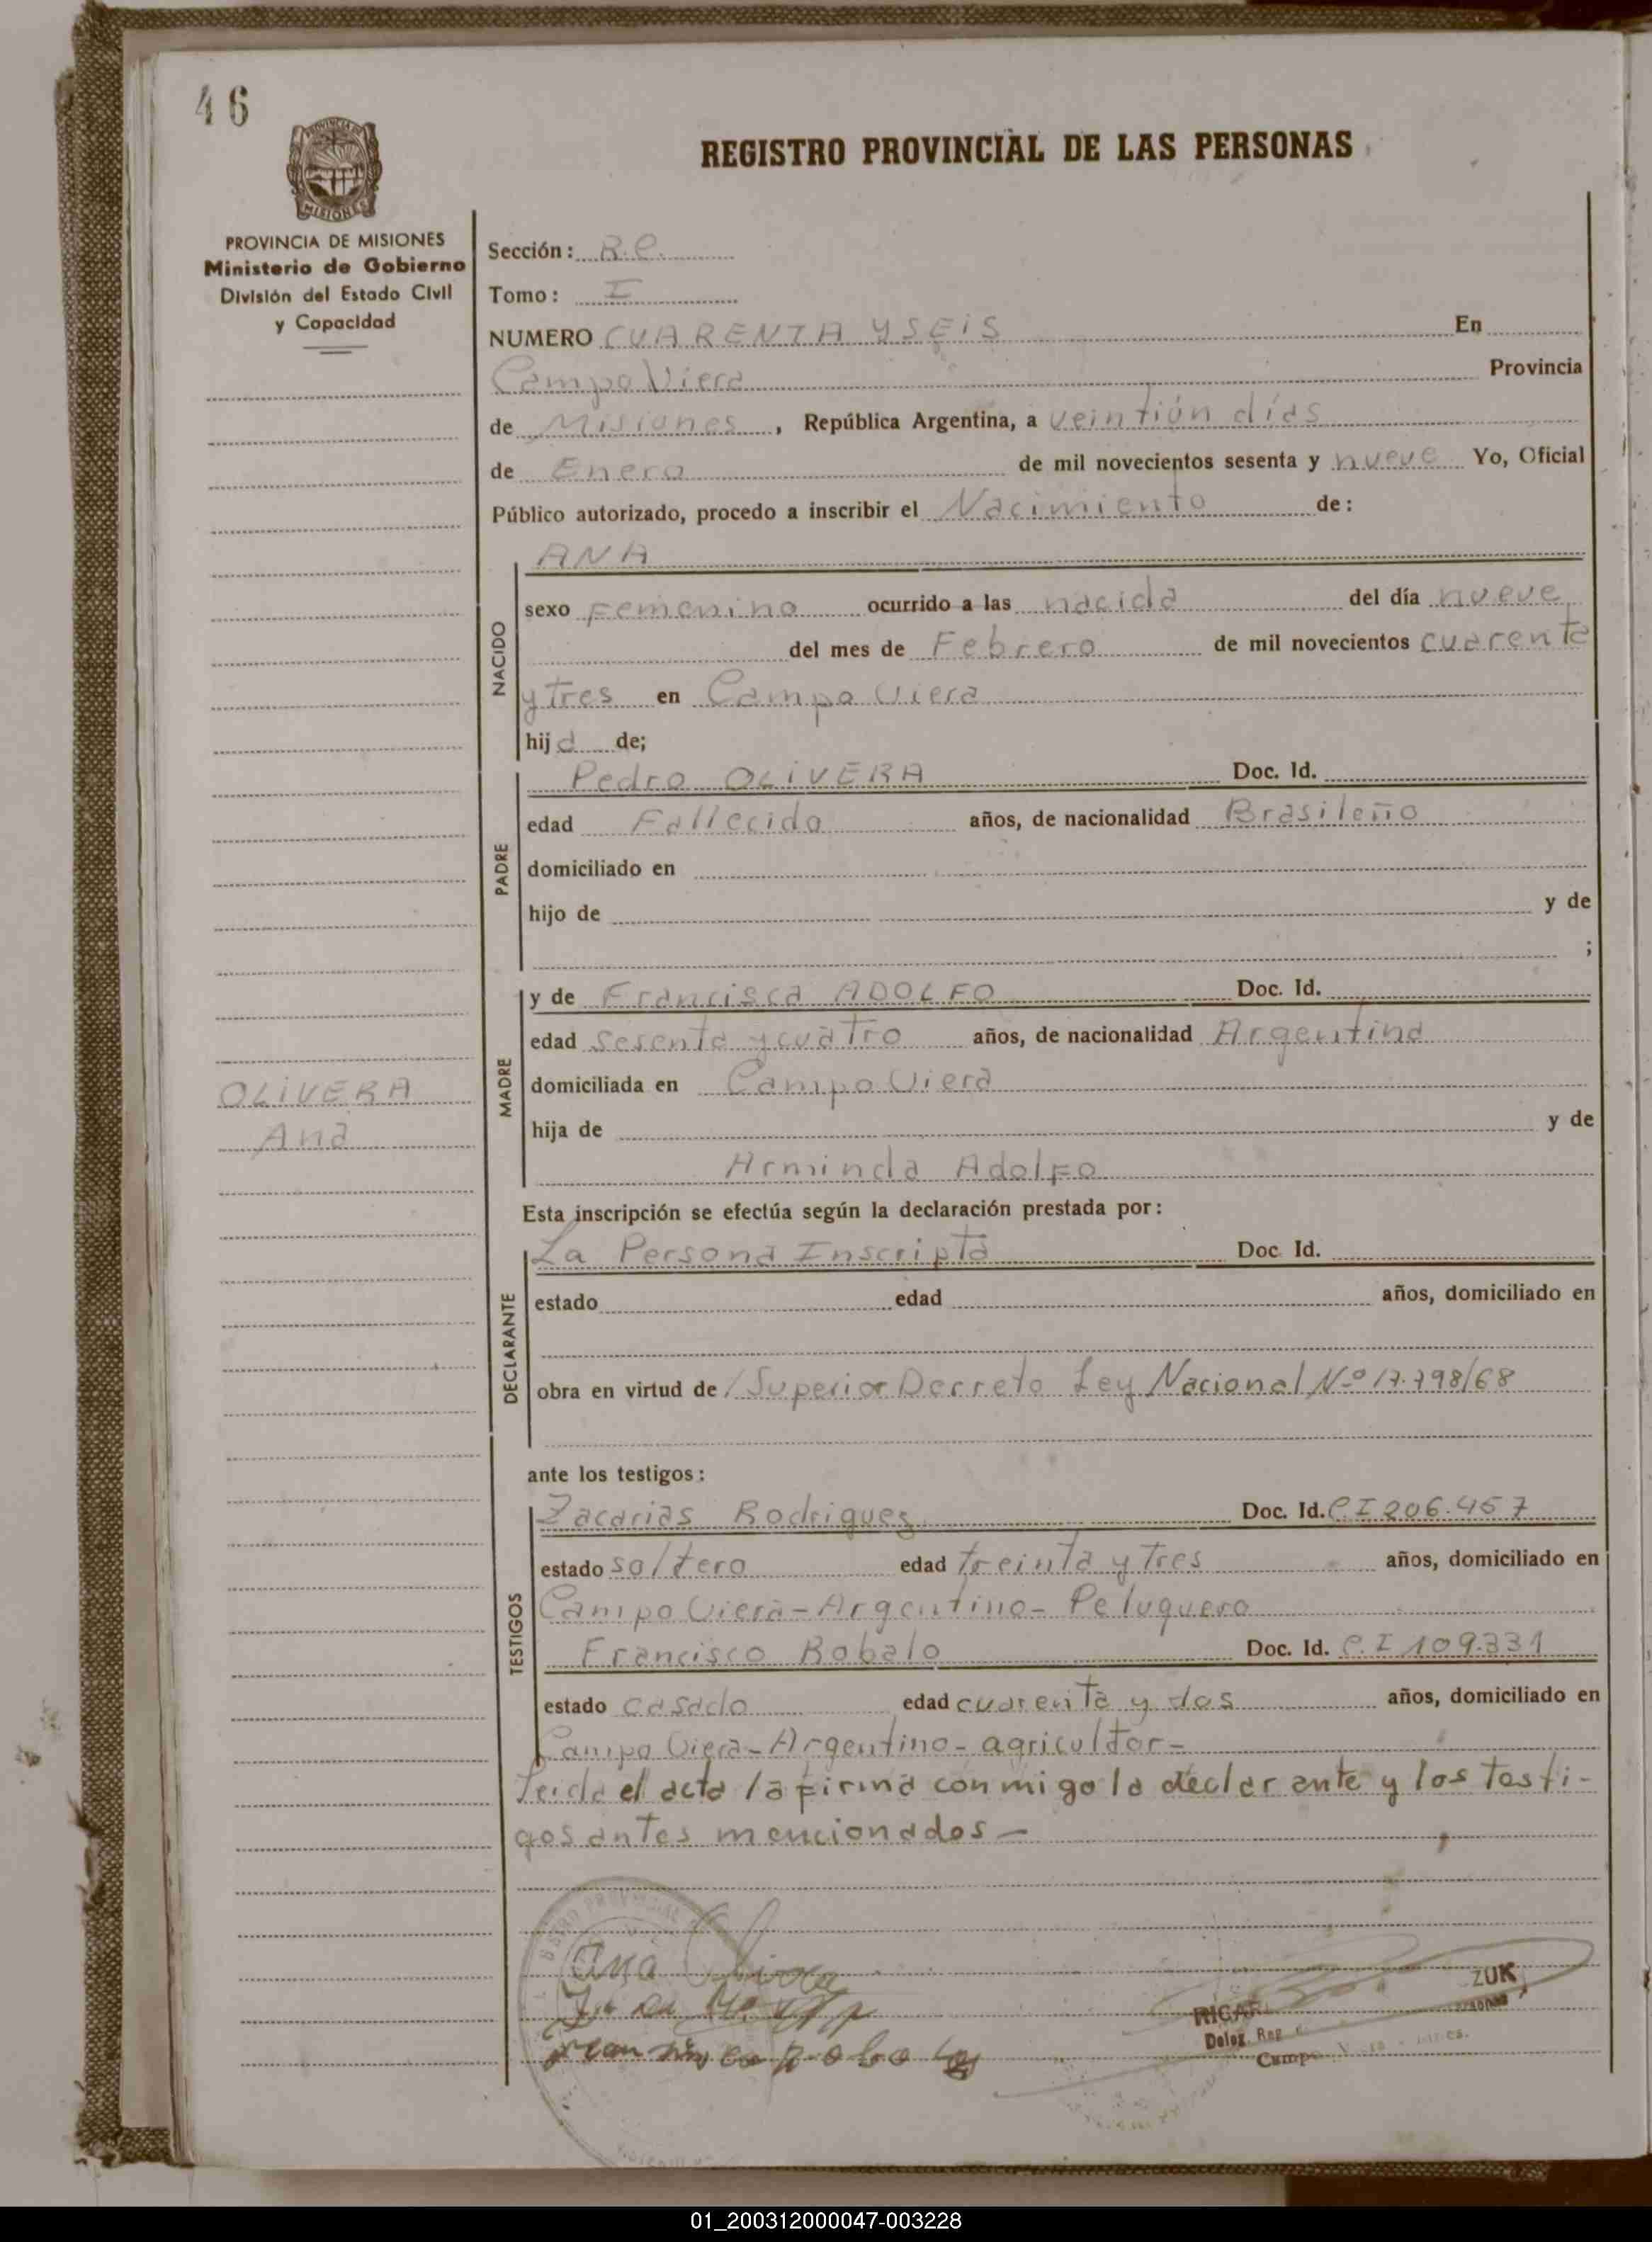 46
REGISTRO PROVINCIAL DE LAS PERSONAS
PROVINCIA DE
MISIONES
PROVINCIA DE MISIONES
Ministerio de Gobierno
División del Estado Civil
y Capacidad
Sección: R.C.
Tomo: I
NUMERO CUARENTA Y SEIS En
Campo Viera Provincia
de Misiones, República Argentina, a veintiún días
de Enero de mil novecientos sesenta y nueve Yo, Oficial
Público autorizado, procedo a inscribir el Nacimiento de:
NACIDO
ANA
sexo Femenino ocurrido a las nacida del día nueve
del mes de Febrero de mil novecientos cuarenta
y tres en Campo Viera
hija de;
PADRE
Pedro OLIVERA Doc. Id.
edad Fallecido años, de nacionalidad Brasileño
domiciliado en
hijo de y de
;
MADRE
y de Francisca ADOLFO Doc. Id.
edad sesenta y cuatro años, de nacionalidad Argentina
domiciliada en Campo Viera
hija de y de
Arminda Adolfo
OLIVERA
Ana
Esta inscripción se efectúa según la declaración prestada por:
DECLARANTE
La Persona Inscripta Doc. Id.
estado edad años, domiciliado en
obra en virtud de / Superior Decreto Ley Nacional Nº 17.798/68
ante los testigos:
TESTIGOS
Zacarias Rodriguez Doc. Id. C.I 206.457
estado soltero edad treinta y tres años, domiciliado en
Campo Viera-Argentino-Peluquero
Francisco Robalo Doc. Id. C.I 109.331
estado casado edad cuarenta y dos años, domiciliado en
Campo Viera-Argentino-agricultor-
Leida el acta la firma conmigo la declarante y los testi-
gos antes mencionados-
Ana
ZUK
Deleg. Reg.
Campo
01_200312000047-003228